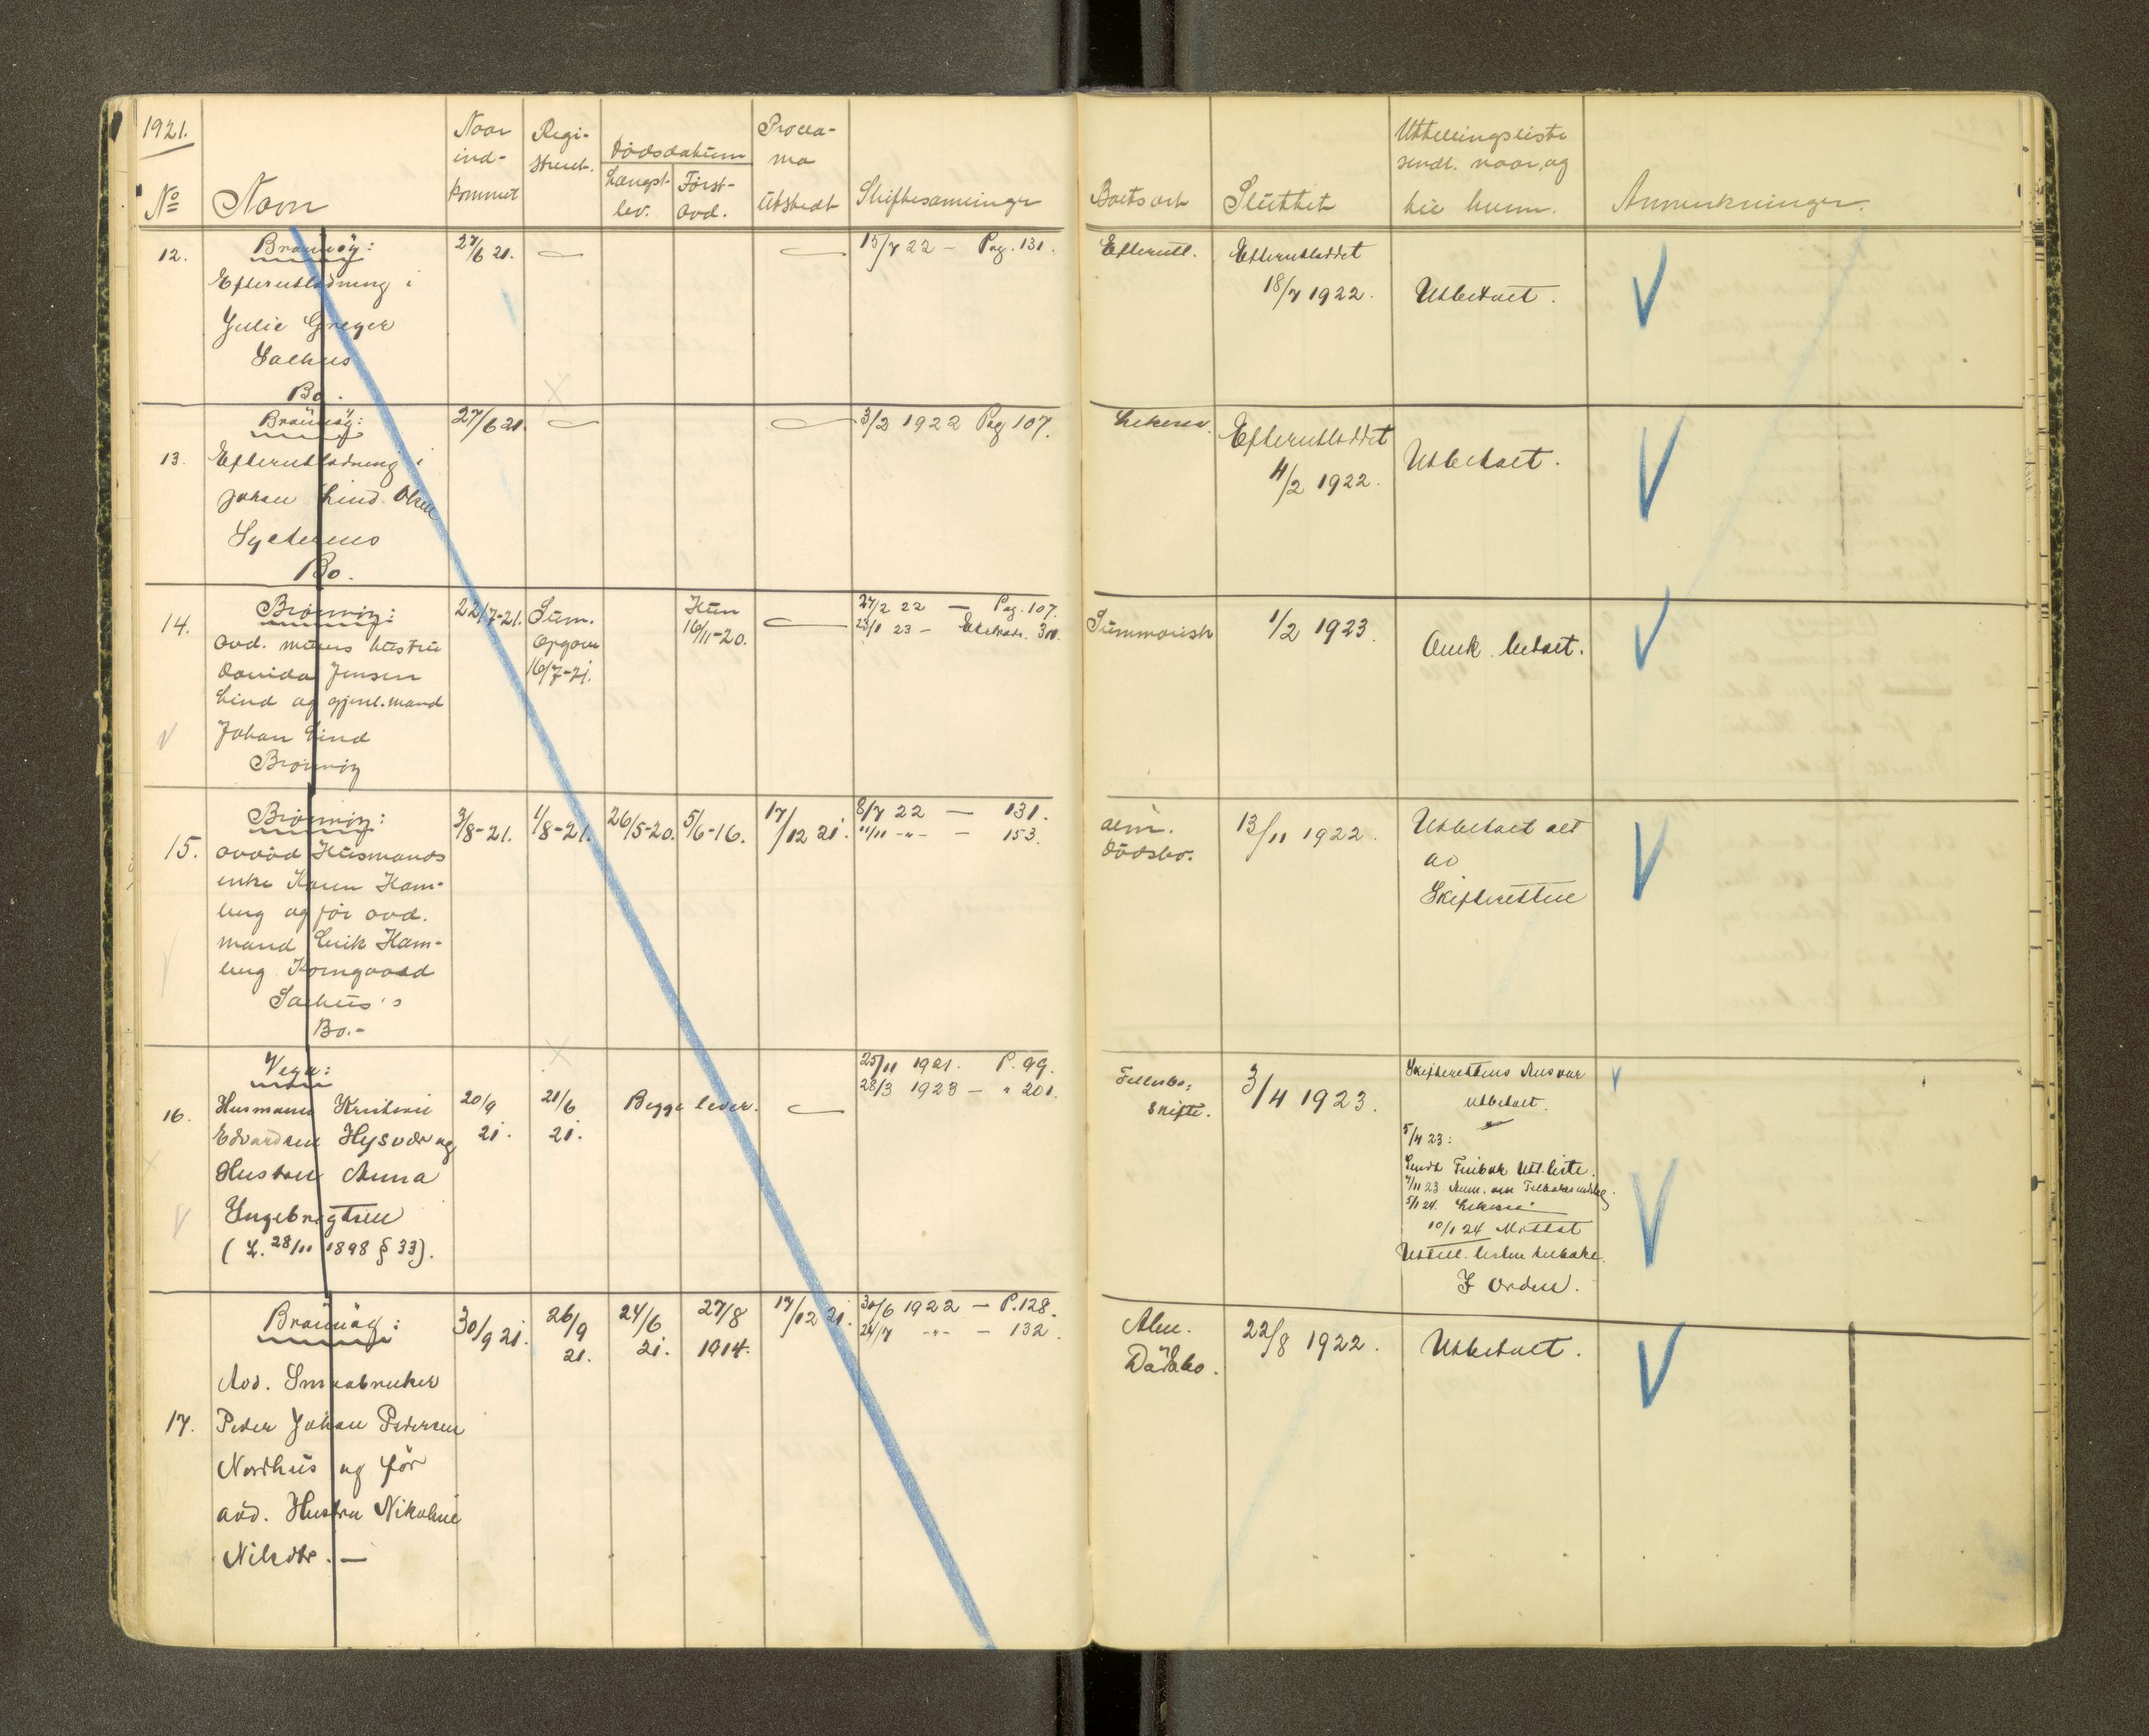 1921.
Nº
Navn
Naar
ind-
kommet
Regi-
streret.
Dödsdatum
Længst-
lev.
Först-
avd.
Procla-
ma
Utstedt
Skiftesamlinger
Boets art
Sluttet
Uttellingsliste
sendt. naar, og
til hvem.
Anmerkninger.
12.
Brönnöy:
Efterutlodning i
Julie Greger
Salhus
Bo.
27/6 21.
15/7 22 - Pag. 131.
Efterutl.
Efterutloddet
18/7 1922.
Utbetalt.
13.
Brönnöy:
Efterutlodning i
Johan Lind Olsen
Bo.
27/6 21.
3/2 1922 Pag 107.
Efterutloddet
4/2 1922.
Utbetalt.
14.
Brönnöy:
avd. hustru
Davida Jensen
Lind og gjenl. mand
Johan Lind
Brönnöy
22/7-21.
Sum.
opgom
16/7-21.
Hun
16/11-20.
27/2 22 — Pag. 107.
23/1 23 - 300.
Summarisk
1/2 1923.
betalt.
15.
Brönnöy:
avdöd Husmands
enke Karen Ham-
berg og för avd.
mand Erik Ham-
berg Torngaard
Salhus's
Bo.-
3/8-21.
1/8-21.
26/5-20.
5/6-16.
17/12 21.
8/7 22 — 131.
11/11 -"- — 153.
alm.
dödsbo.
13/11 1922.
Utbetalt alt
av
Skifteretten
16.
Vega:
Husmann Kristian
Edvardsen Hysvær og
Hustru Anna
Ingebrigtsen
(L. 28/11 1898 § 33).
20/9
21.
21/6
21.
Begge lever.
25/11 1921. P. 99.
28/3 1923 — " 201.
Fellesbo-
skifte.
3/4 1923.
Skifterettens Ansvar
utbetalt.
5/4 23:
Sendt Utl. liste.
10/1 24 Mottat
Uttell. listen tilbake.
I Orden.
17.
Brönnöy:
Avd. Smaabruker
Peder Johan Pedersen
Nordhus og för
avd. Hustru Nikoline
Nilsdtr. —
30/9 21.
26/9
21.
24/6
21.
27/8
1914.
17/12 21.
30/6 1922 — P. 128.
24/7 -"- — 132.
Alm.
Dödsbo.
22/8 1922.
Utbetalt.